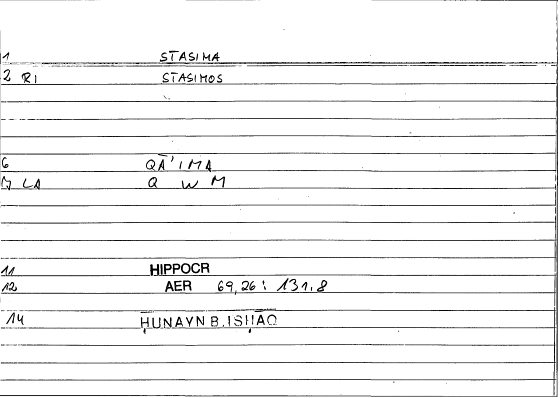 1 STASIMA
2 RI STASIMOS
6 QĀ'IMA
7 LA Q W M
11 HIPPOCR
12 AER 69,26 : 131,8
14 ḤUNAYN B. ISḤĀQ